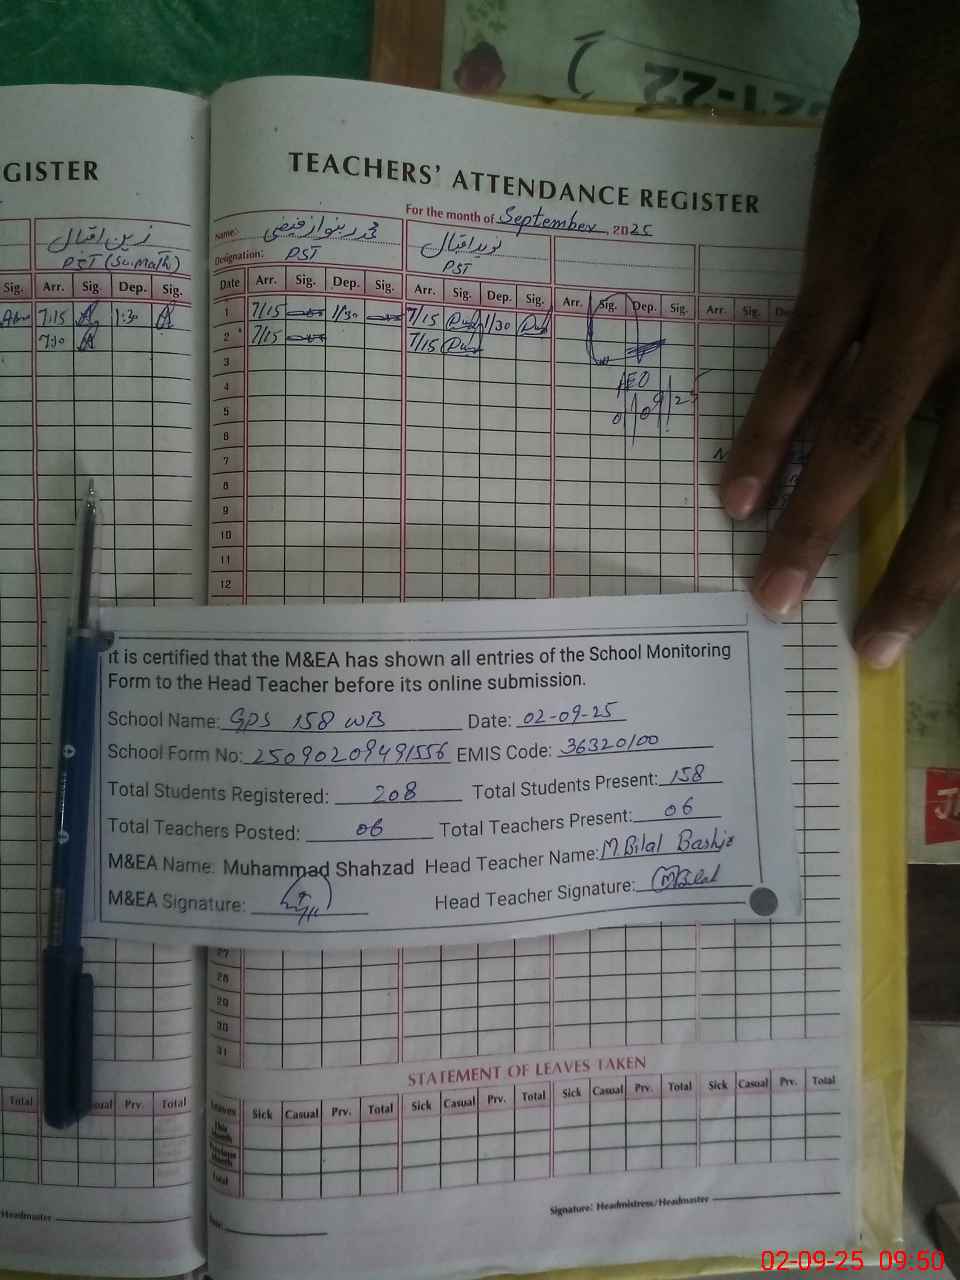 GISTER
TEACHERS' ATTENDANCE REGISTER
For the month of September, 2025
زین اقبال
PST (Sc.Math)
Name:
Designation: PST
نوید اقبال
PST
Sig. Arr. Sig. Dep. Sig.
Date Arr. Sig. Dep. Sig. Arr. Sig. Dep. Sig. Arr. Sig. Dep. Sig. Arr.
7:15 1:30
1 7/15 1/30 7/15 1/30
7:30
2 7/15 7/15
3
4
AEO
5
6
7
8
9
10
11
12
It is certified that the M&EA has shown all entries of the School Monitoring
Form to the Head Teacher before its online submission.
School Name: GPS 158 WB Date: 02-09-25
School Form No: 25090209491556 EMIS Code: 36320100
Total Students Registered: 208 Total Students Present: 158
Total Teachers Posted: 06 Total Teachers Present: 06
M&EA Name: Muhammad Shahzad Head Teacher Name: M. Bilal Bashir
M&EA Signature: Head Teacher Signature: MBilal
27
28
29
30
31
STATEMENT OF LEAVES TAKEN
Total Casual Prv. Total
Leaves Sick Casual Prv. Total Sick Casual Prv. Total Sick Casual Prv. Total Sick Casual Prv. Total
This Month
Previous Month
Total
Headmaster
Signature: Headmistress/Headmaster
02-09-25 09:50